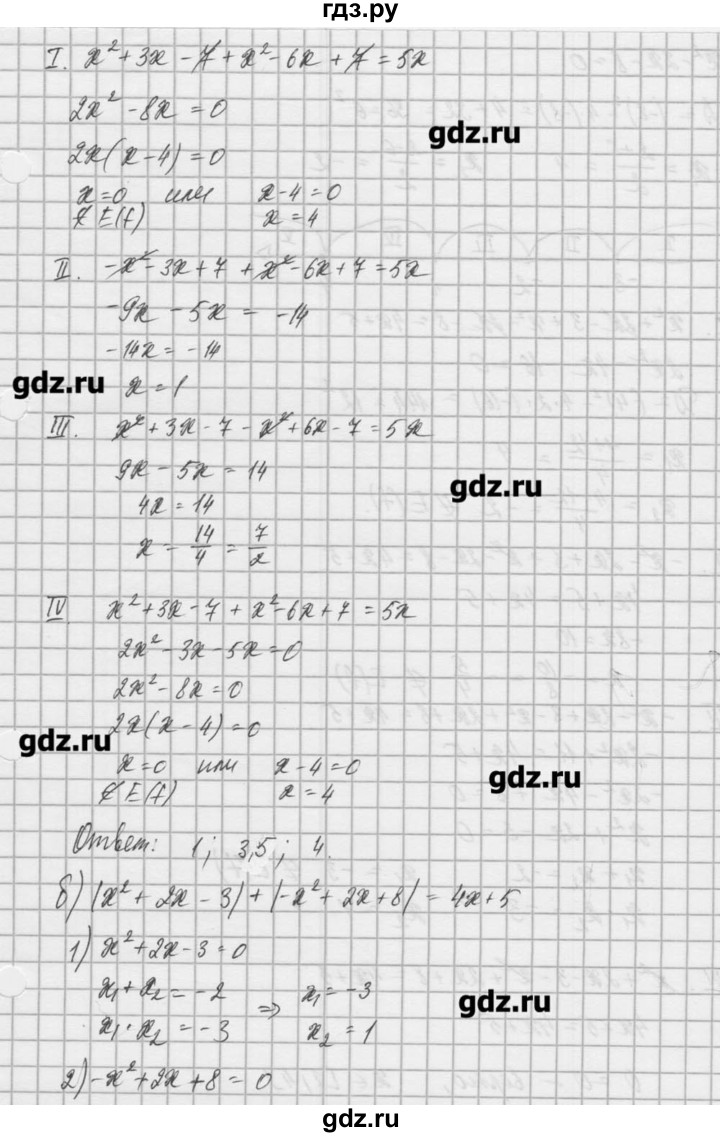 гдз.ру
I. x² + 3x - 7 + x² - 6x + 7 = 5x
2x² - 8x = 0
gdz.ru
2x(x - 4) = 0
x = 0 или x - 4 = 0
∉ E(f) x = 4
II. -x² - 3x + 7 + x² - 6x + 7 = 5x
-9x - 5x = -14
-14x = -14
gdz.ru
x = 1
III. x² + 3x - 7 - x² + 6x - 7 = 5x
9x - 5x = 14
gdz.ru
4x = 14
x = 14/4 = 7/2
IV x² + 3x - 7 + x² - 6x + 7 = 5x
2x² - 3x - 5x = 0
2x² - 8x = 0
2x(x - 4) = 0
gdz.ru
x = 0 или x - 4 = 0
gdz.ru
∉ E(f) x = 4
Ответ: 1; 3,5; 4.
б) |x² + 2x - 3| + |-x² + 2x + 8| = 4x + 5
1) x² + 2x - 3 = 0
x₁ + x₂ = -2 ⇒ x₁ = -3
gdz.ru
x₁ · x₂ = -3 x₂ = 1
2) -x² + 2x + 8 = 0
gdz.ru